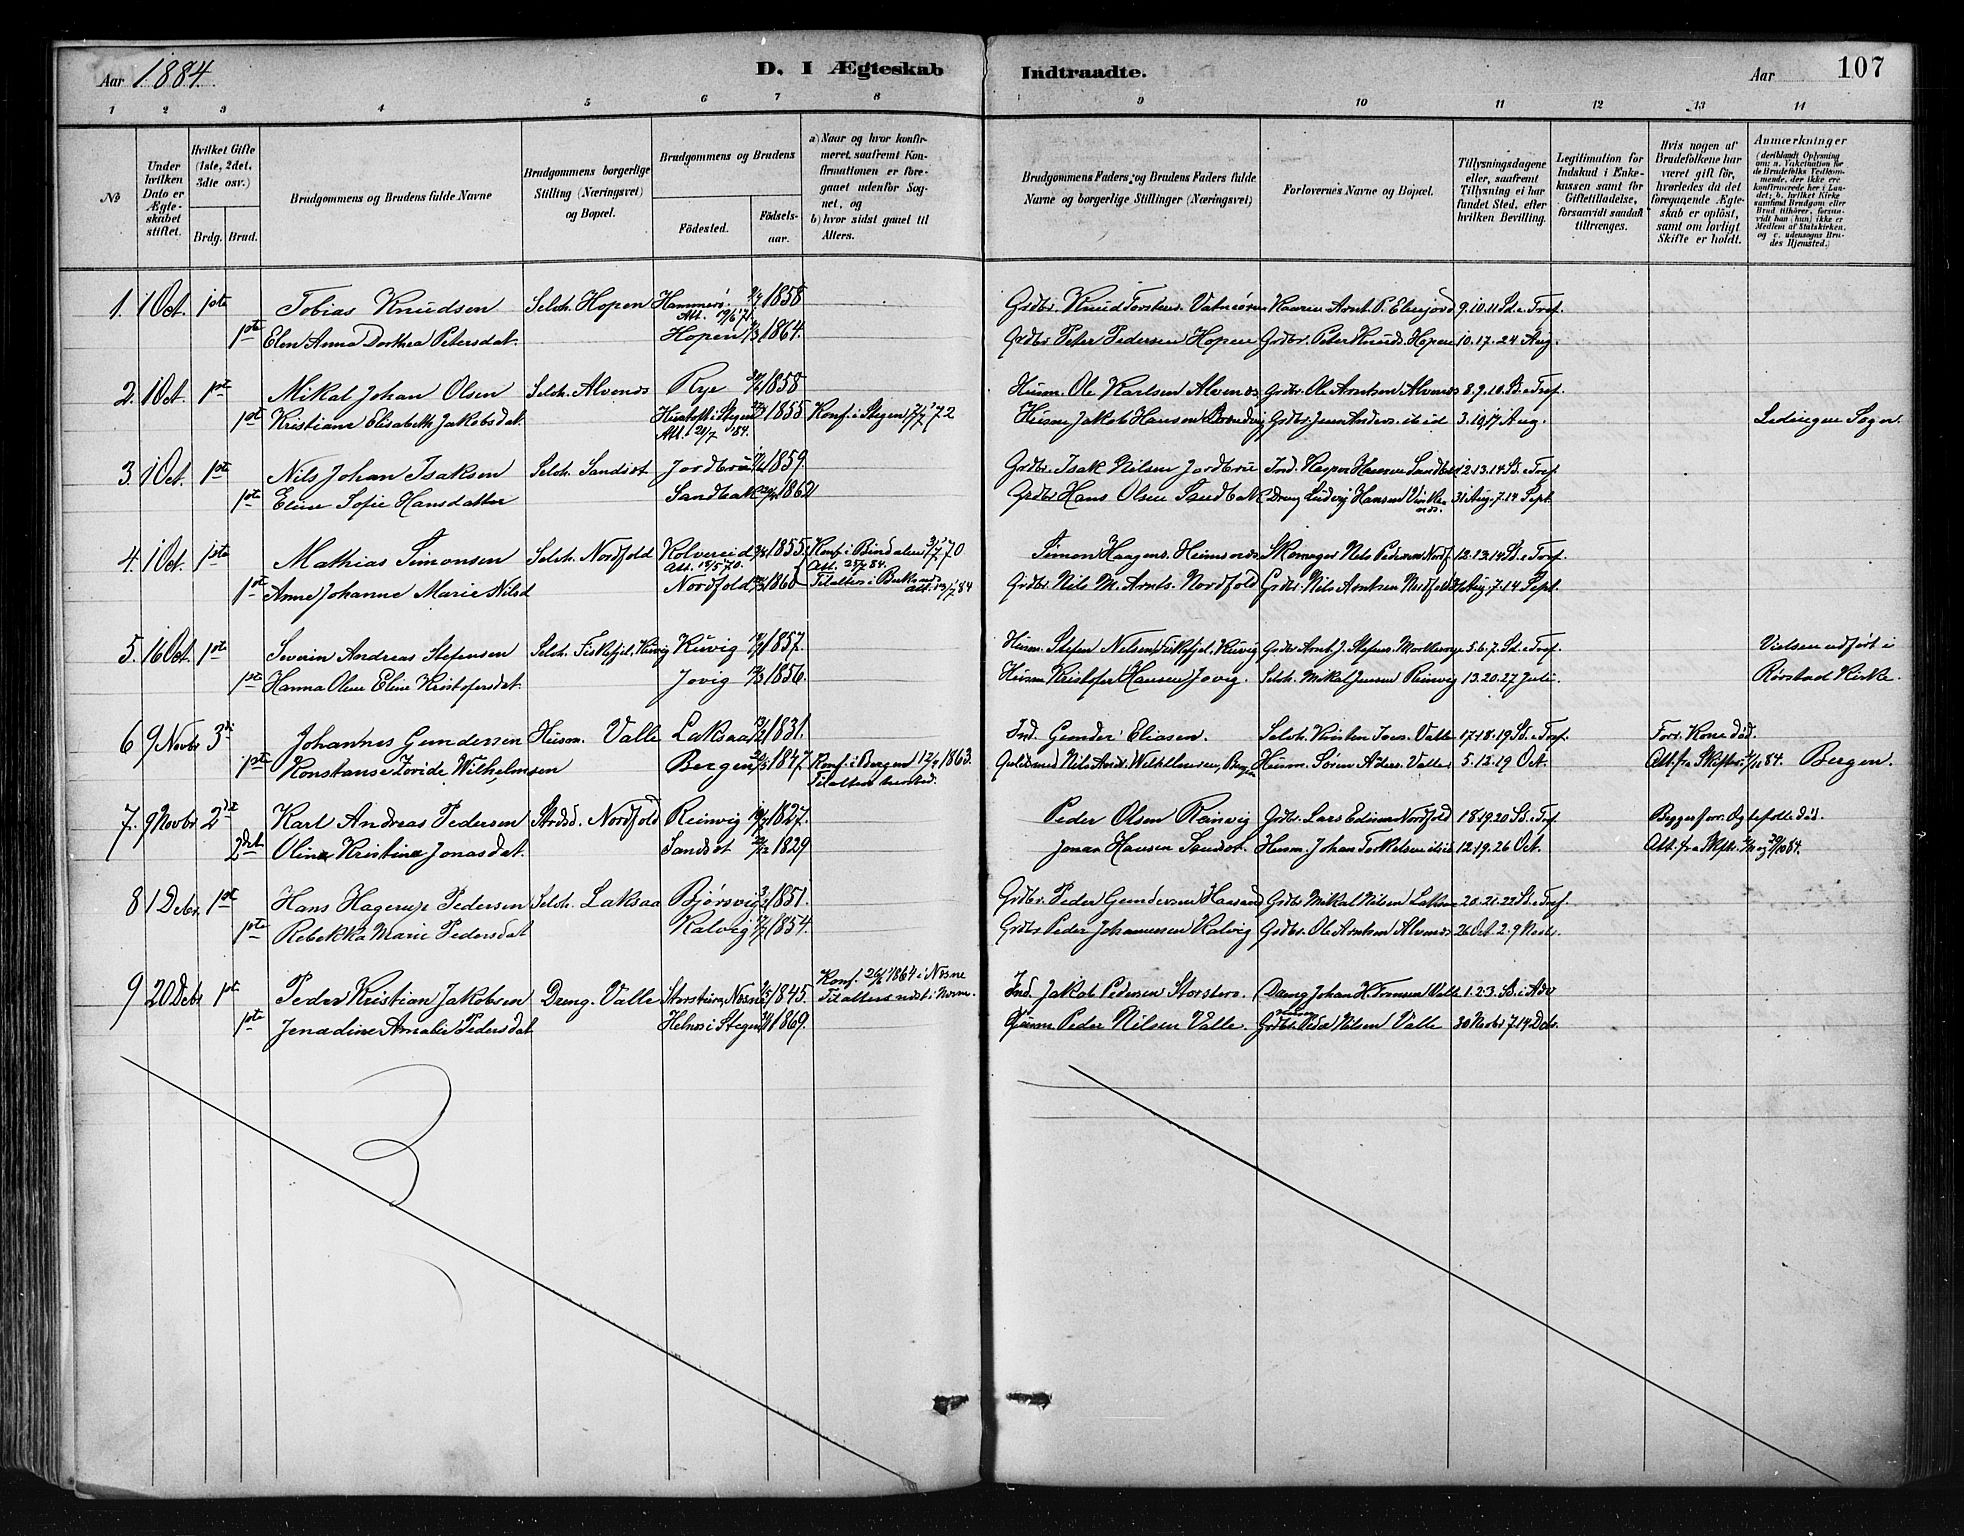 Aar 1884.
D. I Ægteskab Indtraadte.
Aar 107
1 2 3 4 5 6 7 8 9 10 11 12 13 14
№
Under hvilken Dato er Ægteskabet stiftet.
Hvilket Gifte (1ste, 2det, 3dte osv.)
Brdg. Brud.
Brudgommens og Brudens fulde Navne
Brudgommens borgerlige Stilling (Næringsvei) og Bopæl.
Brudgommens og Brudens
Fødested.
Fødselsaar.
a) Naar og hvor konfirmeret, saafremt Konfirmationen er foregaaet udenfor Sognet, og
b) hvor sidst gaaet til Alters.
Brudgommens Faders og Brudens Faders fulde Navne og borgerlige Stillinger (Næringsvei)
Forlovernes Navne og Bopæl.
Tillysningsdagene eller, saafremt Tillysning ei har fundet Sted, efter hvilken Bevilling.
Legitimation for Indskud i Enkekassen samt for Giftetilladelse, forsaavidt saadan tiltrænges.
Hvis nogen af Brudefolkene har været gift før, hvorledes da det foregaaende Ægteskab er opløst, samt om lovligt Skifte er holdt.
Anmærkninger
(deriblandt Oplysning om: a. Vakcination for de Brudefolks Vedkommende, der ikke ere konfirmerede her i Landet; b. hvilket Kirkesamfund Brudgom eller Brud tilhører, forsaavidt han (hun) ikke er Medlem af Statskirken, og c. udensogns Brudes Hjemsted.)
1. 1 Oct. 1ste Tobias Knudsen Selvh. Hopen Hammerö. 1858 Grdbr. Knud Torstens. 9.10.11 Sd. e. Tref.
Att. 19/6 '71
1ste Elen Anna Dorthea Petersdat. Hopen 1864. Grdbr. Peter Pedersen Hopen Grdbr. Peter Knuds. Hopen 10.17.24 Aug.
2. 1 Oct. 1ste Mikal Johan Olsen Selvh. Alvenes Rye 1858 Husm. Ole Karlsen Alvenes Grdbr. Ole Arntsen Alvenes 8.9.10 Sd. e. Tref.
1ste Kristiane Elisabeth Jakobsdat. 1855 Konf. i Stegen 7/7 '72 Husm. Jakob Hansen Grdbr. Jens Anders. ibid 3.10.17 Aug. Lødingen Sogn.
Att. 21/7 '84.
3. 1 Oct. 1ste Nils Johan Isaksen Selvh. Sandset Jordbru 1859. Grdbr. Isak Nilsen Jordbru Ind. Kasper Hansen 12.13.14 Sd. e. Tref.
1ste Eline Sofie Hansdatter Sandbak 1862 Grdbr. Hans Olsen Sandbak Dreng Ludvig Hansen 31 Aug. 7.14 Sept.
4. 1 Oct. 1ste Mathias Simonsen Selvh. Nordfold Kolvereid 1855. Konf. i Bindalen 3/7 '70 Simon Haagens. Skomager Nils Pedersen Nordf. 12.13.14 Sd. e. Tref.
Att. 18/5 '70. Att. 25/7 84.
1ste Anne Johanne Marie Nilsd Nordfold 1860 Tilalters i Grdbr. Nils M. Arnts. Nordfold Grdbr. Nils Arntsen Nordfold 31 Aug. 7.14 Sept.
5. 16 Oct. 1ste Severin Andreas Stefensen Selvh. Fiskefjel. Kuvig Kuvig 1857. Husm. Stefen Nelsen Fiskefjel. Kuvig Grdbr. Arnt J. Stefens. 5.6.7. Sd. e. Tref. Vielsen udført i
1ste Hanna Oline Eline Kristofersdat. Jovig 1856. Husm. Kristofer Hansen Jovig. Selvh. Mikal Jensen Reinvig 13.20.27 Juli. Rørstad Kirke.
6 9 Novbr 3die Johannes Gundersen Husm. Valle Laksaa 1831. Ind. Gunder Eliasen. Selvh. Kristen Joers. Valle 17.18.19 Sd. e. Tref. Forr. Kone död.
1ste Konstanse Zoride Wilhelmsen Bergen 1847. Konf. i Bergen 1863. Guldsmed Nils Andr. Wilhelmsen, Bergen Husm. Sören Anders. Valle 5.12.19 Oct. Att. fra Skifter. 84. Bergen.
7. 9 Novbr 2det Karl Andreas Pedersen Strdsd. Nordfold Reinvig 1827. Peder Olsen Reinvig Grdbr. Lars Edvardsen Nordfold 18.19.20 Sd. e. Tref. Begges forr. Ægtefolle död.
2det Olina Kristine Jonasdat. Sandset 1829 Jonas Hansen Sandset. Husm. Johan Torkelsen ibid 12.19.26 Oct. Att. fra Skifter.
8 1 Debr. 1ste Hans Hagerup Pedersen Selvh. Laksaa Bjørsvig 1851. Grdbr. Peder Gundersen Grdbr. Mikal Nilsen Laksaa 20.21.22 Sd. e. Tref.
1ste Rebekka Marie Pedersdat Kalvig 1854. Grdbr. Peder Johannesen Kalvig Grdbr. Ole Arntsen Alvenes 26 Oct. 2.9 Novbr.
9 20 Debr 1ste Peder Kristian Jakobsen Dreng. Valle Nesne 1845. Konf. 1864 i Nesne Tilalters sidst i Nesne. Ind. Jakob Pedersen Dreng Johan H. Valle 1.2.3 Sd. i Adv
1ste Jenadine Amalie Pedersdat Helnes i Stegen 1869. Husm. Peder Nilsen Valle. Grdbr. Peder Nilsen Valle 30 Novbr 7.14 Debr.